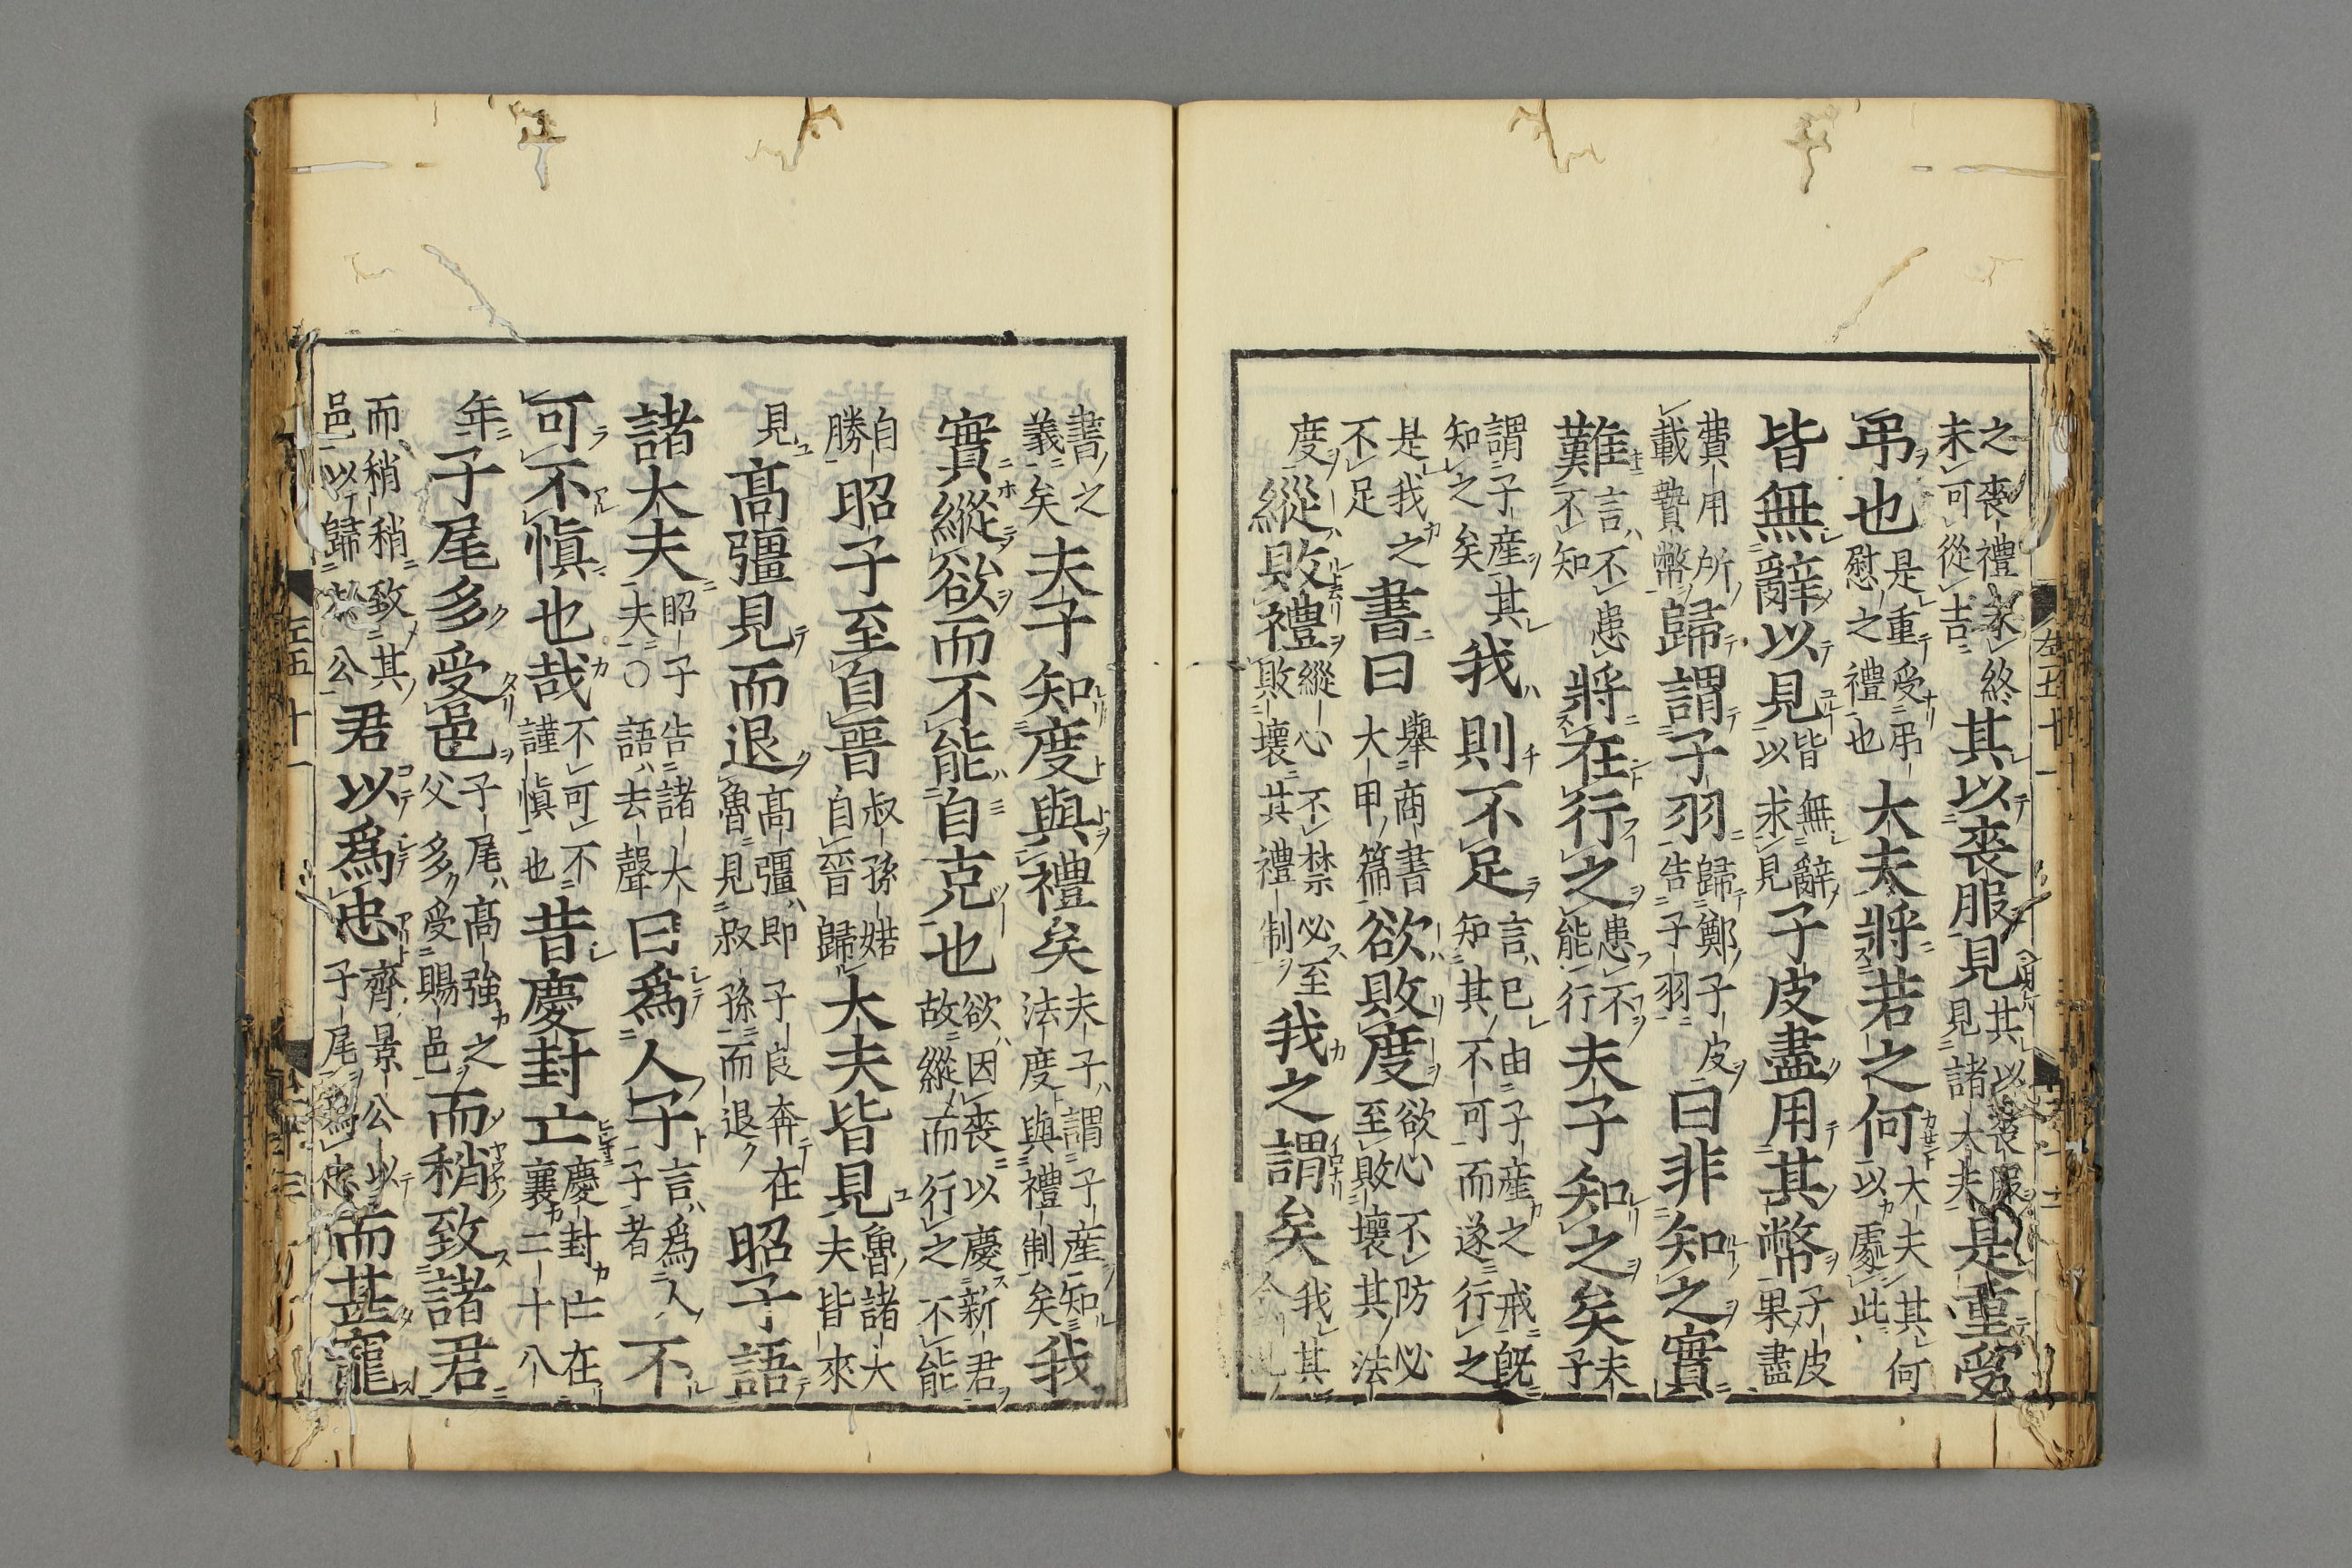 之喪禮未終未可從吉其以喪服見其以喪服見諸大夫是重受
弔也是重受弔慰之禮也大夫將若之何大夫其何以處此
皆無辭以見皆無辭以求見子皮盡用其幣子皮果盡
費用所載贄幣歸謂子羽歸鄭子皮告子羽曰非知之實
難言不患不知將在行之患不能行夫子知之矣夫子
謂子產其知之矣我則不足言已由子產之戒既知其不可而遂行之
是我之不足書曰舉商書大甲篇欲敗度欲心不防必至敗壞其法
度縱敗禮縱心不禁必至敗壞其禮制我之謂矣我其
左五 十一
書之義矣夫子知度與禮矣夫子謂子產知法度與禮制矣我
實縱欲而不能自克也欲因喪以慶新君故縱而行之不能
自勝昭子至自晉叔孫婼自晉歸大夫皆見魯諸大夫皆來
見高彊見而退高彊即子良奔在魯見叔孫而退昭子語
諸大夫昭子告諸大夫〇語去聲曰爲人子言爲人子者不
可不慎也哉不可不謹慎也昔慶封亡慶封亡在襄二十八
年子尾多受邑子尾高強之父多受賜邑而稍致諸君
而稍稍致其邑以歸於公君以爲忠齊景公以子尾爲忠而甚寵
左五 十一